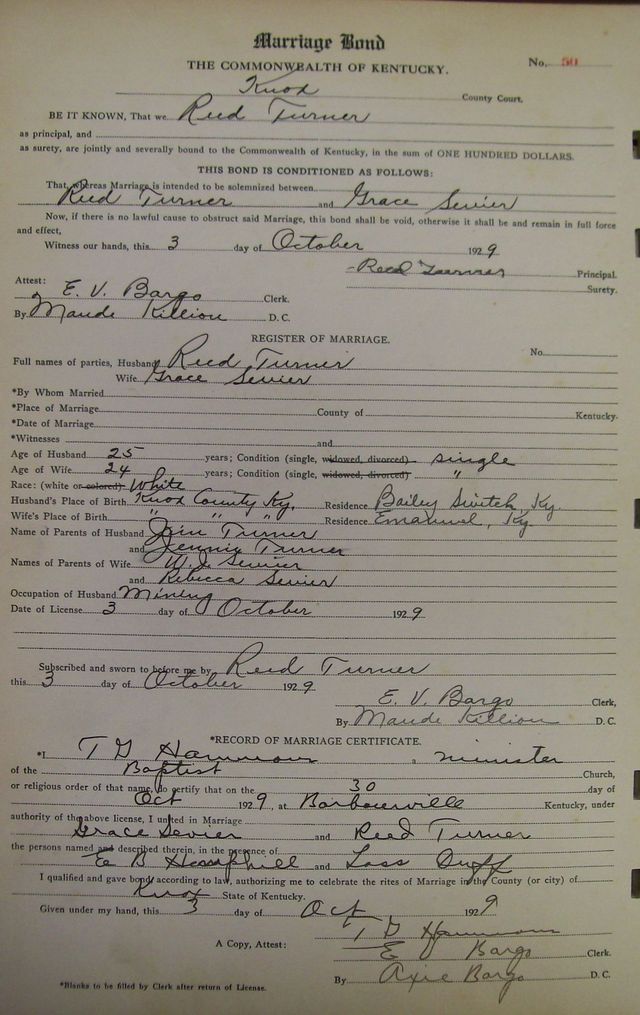 Marriage Bond
THE COMMONWEALTH OF KENTUCKY.
No. 50
Knox County Court,
BE IT KNOWN, That we Reed Turner
as principal, and
as surety, are jointly and severally bound to the Commonwealth of Kentucky, in the sum of ONE HUNDRED DOLLARS.
THIS BOND IS CONDITIONED AS FOLLOWS:
That, whereas Marriage is intended to be solemnized between
Reed Turner and Grace Sevier
Now, if there is no lawful cause to obstruct said Marriage, this bond shall be void, otherwise it shall be and remain in full force
and effect,
Witness our hands, this 3 day of October 1929
Reed Turner Principal.
Surety.
Attest: E. V. Bargo Clerk.
By Maude Killion D. C.
REGISTER OF MARRIAGE.
No.
Full names of parties, Husband Reed Turner
Wife Grace Sevier
*By Whom Married
*Place of Marriage County of Kentucky.
*Date of Marriage
*Witnesses and
Age of Husband 25 years; Condition (single, widowed, divorced) single
Age of Wife 24 years; Condition (single, widowed, divorced) "
Race: (white or colored) White
Husband's Place of Birth Knox County Ky. Residence Bailey Switch, Ky.
Wife's Place of Birth " " " Residence Emanuel, Ky
Name of Parents of Husband Turner
and Jennie Turner
Names of Parents of Wife W. J. Sevier
and Rebecca Sevier
Occupation of Husband Mining
Date of License 3 day of October 1929
Subscribed and sworn to before me by Reed Turner
this 3 day of October 1929
E. V. Bargo Clerk,
By Maude Killion D. C.
*RECORD OF MARRIAGE CERTIFICATE.
*I T G Hammons, a minister
of the Baptist Church,
or religious order of that name, do certify that on the 30 day of
Oct 1929, at Barbourville Kentucky, under
authority of the above license, I united in Marriage
Grace Sevier and Reed Turner
the persons named and described therein, in the presence of
E B Hemphill and Duff
I qualified and gave bond according to law, authorizing me to celebrate the rites of Marriage in the County (or city) of
Knox State of Kentucky.
Given under my hand, this 3 day of Oct 1929
T G Hammons
A Copy, Attest: E Bargo Clerk.
By Axie Bargo D. C.
*Blanks to be filled by Clerk after return of License.